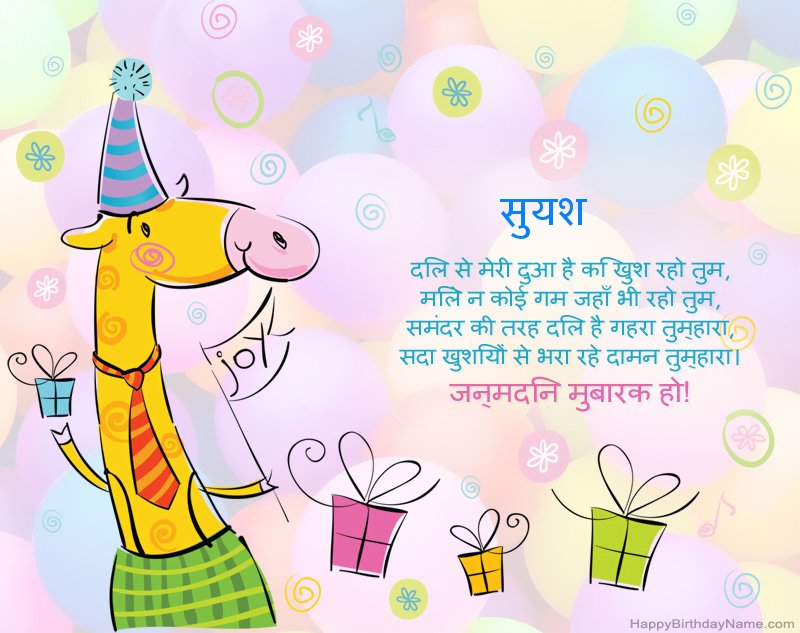 सुयश
दिल से मेरी दुआ है कि खुश रहो तुम,
मिले न कोई गम जहाँ भी रहो तुम,
समंदर की तरह दिल है गहरा तुम्हारा,
सदा खुशियों से भरा रहे दामन तुम्हारा।
जन्मदिन मुबारक हो!
joy
HappyBirthdayName.com